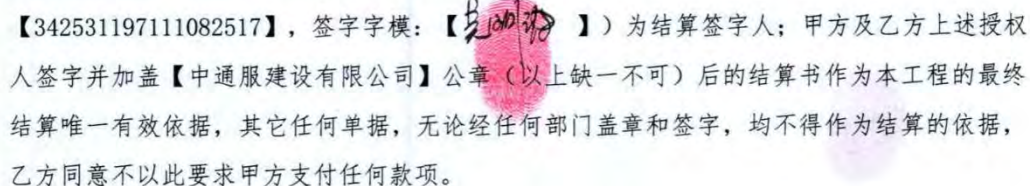 【342531197111082517】，签字字模：【】）为结算签字人；甲方及乙方上述授权
人签字并加盖【中通服建设有限公司】公章（以上缺一不可）后的结算书作为本工程的最终
结算唯一有效依据，其它任何单据，无论经任何部门盖章和签字，均不得作为结算的依据，
乙方同意不以此要求甲方支付任何款项。